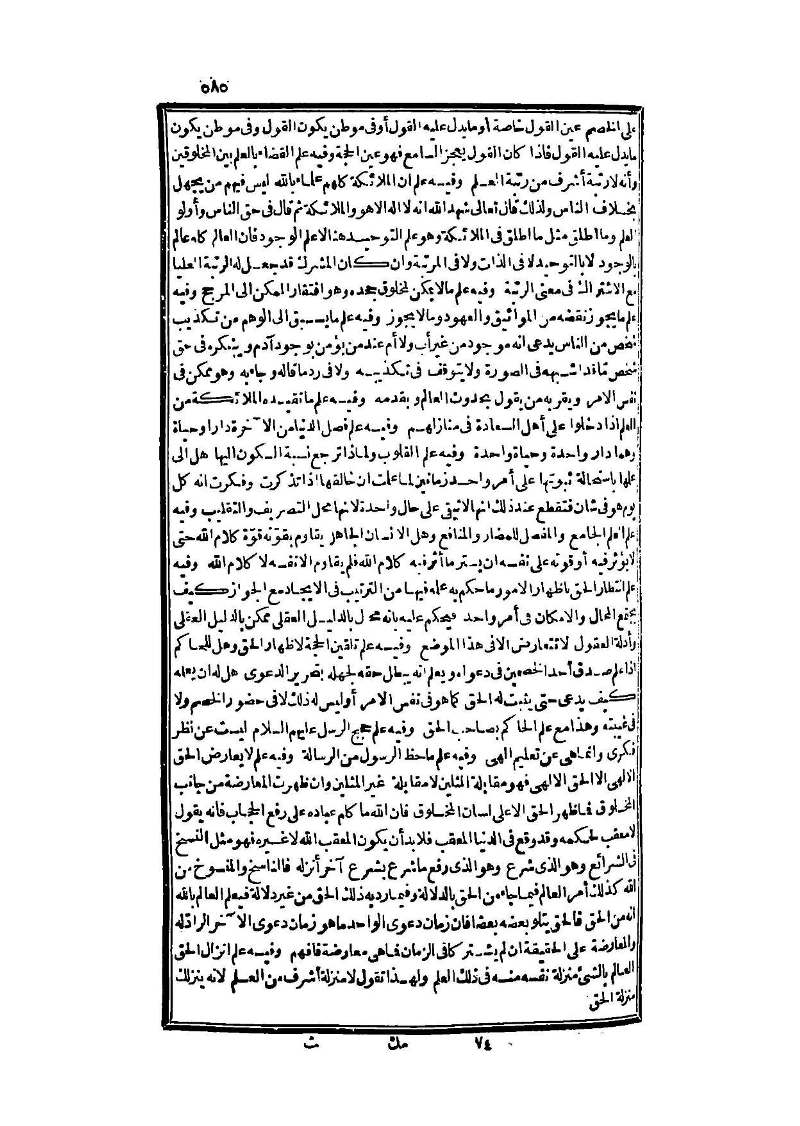 ٥٨٥
على الخصم عين القول خاصة أو ما يدل عليه القول أو فى موطن يكون القول وفى موطن يكون
ما يدل عليه القول فاذا كان القول يعجز السامع فهو عين الحجة وفيه علم القضاء بالعلم بين المخلوقين
وأنه لا رتبة أشرف من رتبة العلم وفيه علم ان الملائكة كلهم علماء بالله ليس فيهم من يجهل
بخلاف الناس ولذلك قال تعالى شهد الله انه لا اله الا هو والملائكة ثم قال فى حق الناس وأولو
العلم وما اطلق مثل ما اطلق فى الملائكة وهو علم التوحيد هنا لا علم الوجود فان العالم كله عالم
بالوجود لا بالتوحيد لا فى الذات ولا فى المرتبة وان كان المشرك قد جعل له الرتبة العليا
مع الاشتراك فى معنى الرتبة وفيه علم ما لا يمكن لمخلوق جحده وهو افتقار الممكن الى المرجح وفيه
علم ما يجوز نقضه من المواثيق والعهود وما لا يجوز وفيه علم ما يسبق الى الوهم من تكذيب
شخص من الناس يدعى انه موجود من غير أب ولا أم عند من يؤمن بوجود آدم ويشكره فى حق
شخص ما قد اشبهه فى الصورة ولا يتوقف فى تكذيبه ولا فى رد ما قاله وجاء به وهو ممكن فى
نفس الامر ويقربه من يقول بحدوث العالم و بقدمه وفيه علم ما تفيده الملائكة من
العلم اذا دخلوا على أهل السعادة فى منازلهم وفيه علم فصل الدنيا من الآخرة دارا وحياة
وهما دار واحدة وحياة واحدة وفيه علم القلوب ولماذا ترجع نسبة السكون اليها هل الى
علمها باستحالة ثبوتها على أمر واحد زمانين لما علمت ان خالقها اذا تذكرت وفكرت انه كل
يوم هو فى شان فتقطع عند ذلك انها لا تبقى على حال واحدة لانها محل التصريف والتقليب وفيه
علم العلم الجامع والمفصل للمضار والمنافع وهل الانسان الجاهل يقاوم بقوته قوة كلام الله حتى
لا يؤثر فيه أو قوته على نفسه ان يستر ما أثر فيه كلام الله فلم يقاوم الا نفسه لا كلام الله وفيه
علم انتظار الحق باظهار الامور ما حكم به علمه فيها من الترتيب فى الايجاد مع الجواز كيف
يجتمع المحال والامكان فى أمر واحد فيحكم عليه بانه محال بالدليل العقلى ممكن بالدليل العقلى
وأدلة العقول لا تتعارض الا فى هذا الموضع وفيه علم تلقين الحجة لاظهار الحق وهل للحاكم
اذا علم صدق أحد الخصمين فى دعواه ويعلم انه يبطل حقه لجهله بتحرير الدعوى هل له ان يعلمه
كيف يدعى حتى يثبت له الحق كما هو فى نفس الامر أو ليس له ذلك لا فى حضور الخصم ولا
فى غيبته وهذا مع علم الحاكم بصاحب الحق وفيه علم حجج الرسل عليهم السلام ليست عن نظر
فكرى وانما هى عن تعليم الهى وفيه علم ما حظ الرسول من الرسالة وفيه علم لا يعارض الحق
الالهى الا الحق الالهى فهو مقابلة المثلين لا مقابلة غير المثلين وان ظهرت المعارضة من جانب
المخلوق فما ظهر الحق الا على لسان المخلوق فان الله ما كلم عباده على رفع الحجاب فانه يقول
لا معقب لحكمه وقد وقع فى الدنيا المعقب فلا بد أن يكون المعقب الله لا غيره فهو مثل النسخ
فى الشرائع وهو الذى شرع وهو الذى رفع ما شرع بشرع آخر أنزله فالناسخ والمنسوخ من
الله كذلك أمر العالم فيما جاء من الحق بالدلالة وفيما رد به ذلك الحق من غير دلالة فيعلم العالم بالله
انه من الحق فالحق يتلو بعضه بعضا فان زمان دعوى الواحد ما هو زمان دعوى الآخر الراد له
والمعارضة على الحقيقة ان لم يشتركا فى الزمان فما هى معارضة فافهم وفيه علم انزال الحق
العالم بالشئ منزلة نفسه منه فى ذلك العلم ولهذا تقول لا منزلة أشرف من العلم لانه ينزلك
منزلة الحق
٧٤ مك ث